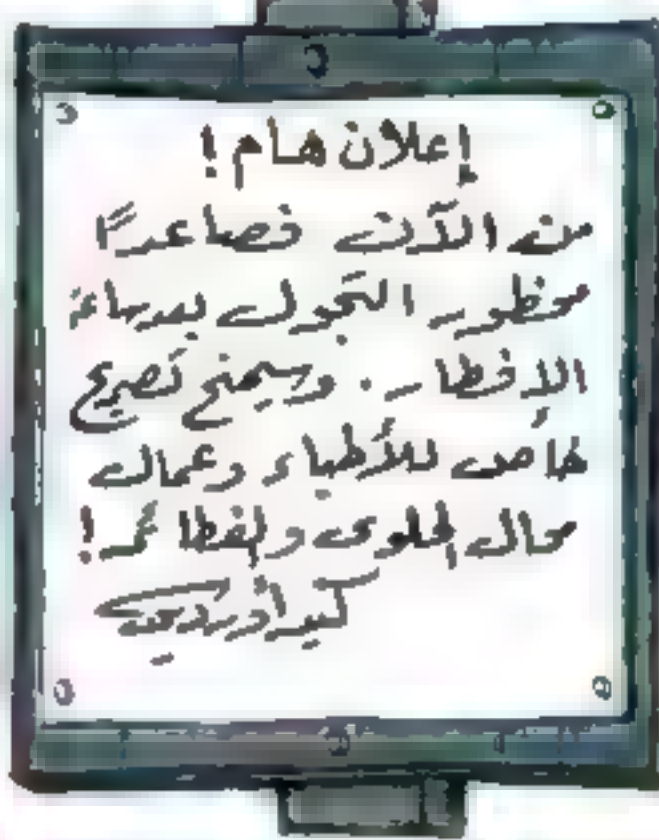 إعلان هام !
من الآن فصاعدًا
محظور التجول بعد ساعة
الإفطار . وسيمنح تصريح
خاص للأطباء وعمال
محال الحلوى والفطائر !
كبير أوردين